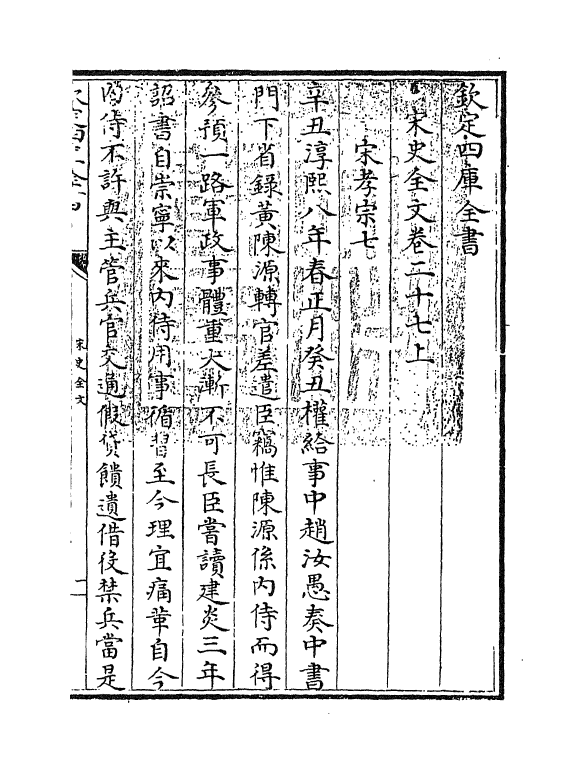 欽定四庫全書
宋史全文卷二十七上
宋孝宗七
辛丑淳熙八年春正月癸丑權給事中趙汝愚奏中書
門下省錄黃陳源轉官差遣臣竊惟陳源係內侍而得
參預一路軍政事體重大漸不可長臣嘗讀建炎三年
詔書自崇寧以來內侍用事循習至今理宜痛革自今
內侍不許與主管兵官交通假貸饋遺借役禁兵當是
宋史全文